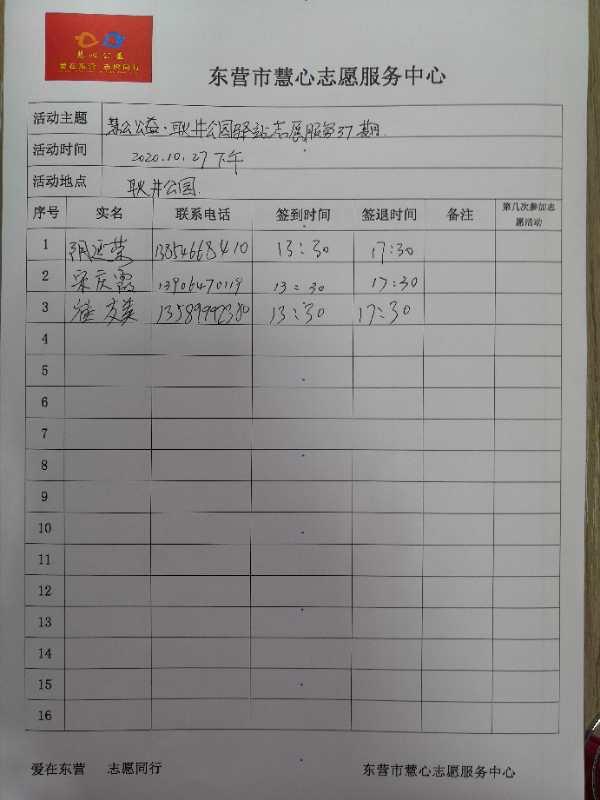 慧心公益
爱在东营 志愿同行
东营市慧心志愿服务中心
活动主题 慧心公益·耿井公园驿站志愿服务37期
活动时间 2020.10.27下午
活动地点 耿井公园
序号 实名 联系电话 签到时间 签退时间 备注 第几次参加志愿活动
1 13854668410 13:30 17:30
2 宋庆霞 13906470119 13:30 17:30
3 13589992380 13:30 17:30
4
5
6
7
8
9
10
11
12
13
14
15
16
爱在东营 志愿同行 东营市慧心志愿服务中心